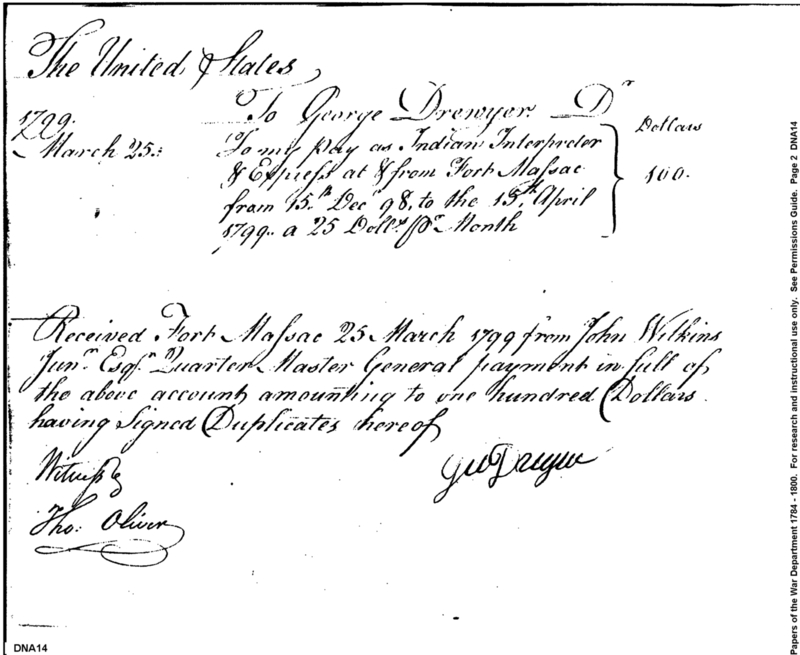 The United States
To George Drewyer Dr
1799.
March 25.
To my pay as Indian Interpreter
& Express at & from Fort Massac
from 15.th Decr 98, to the 15.th April
1799. a 25 Dolls. pr Month
Dollars
100.
Received Fort Massac 25 March 1799 from John Wilkins
Junr. Esqr. Quarter Master General payment in full of
the above account amounting to one hundred Dollars
having Signed Duplicates hereof
Witness
Geo Drewyer
Tho: Oliver
DNA14
Papers of the War Department 1784 - 1800. For research and instructional use only. See Permissions Guide. Page 2 DNA14